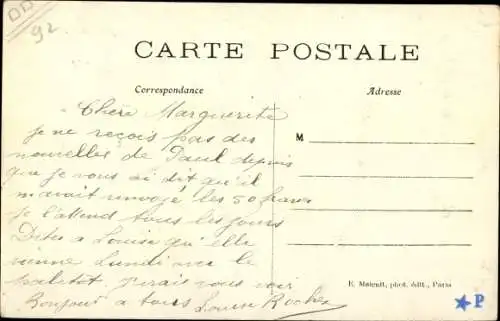 92
CARTE POSTALE
Correspondance
Adresse
Chère Marguerite
je ne reçois pas des
nouvelles de Paul depuis
que je vous ai dit qu'il
m'avait renvoyé les 50 francs
je l'attend tous les jours
Dites a Louise qu'elle
vienne Lundi avec le
paletot, j'irais vous voir
Bonjour a tous Louise Roches
M
E. Malcuit, phot. édit., Paris
★P